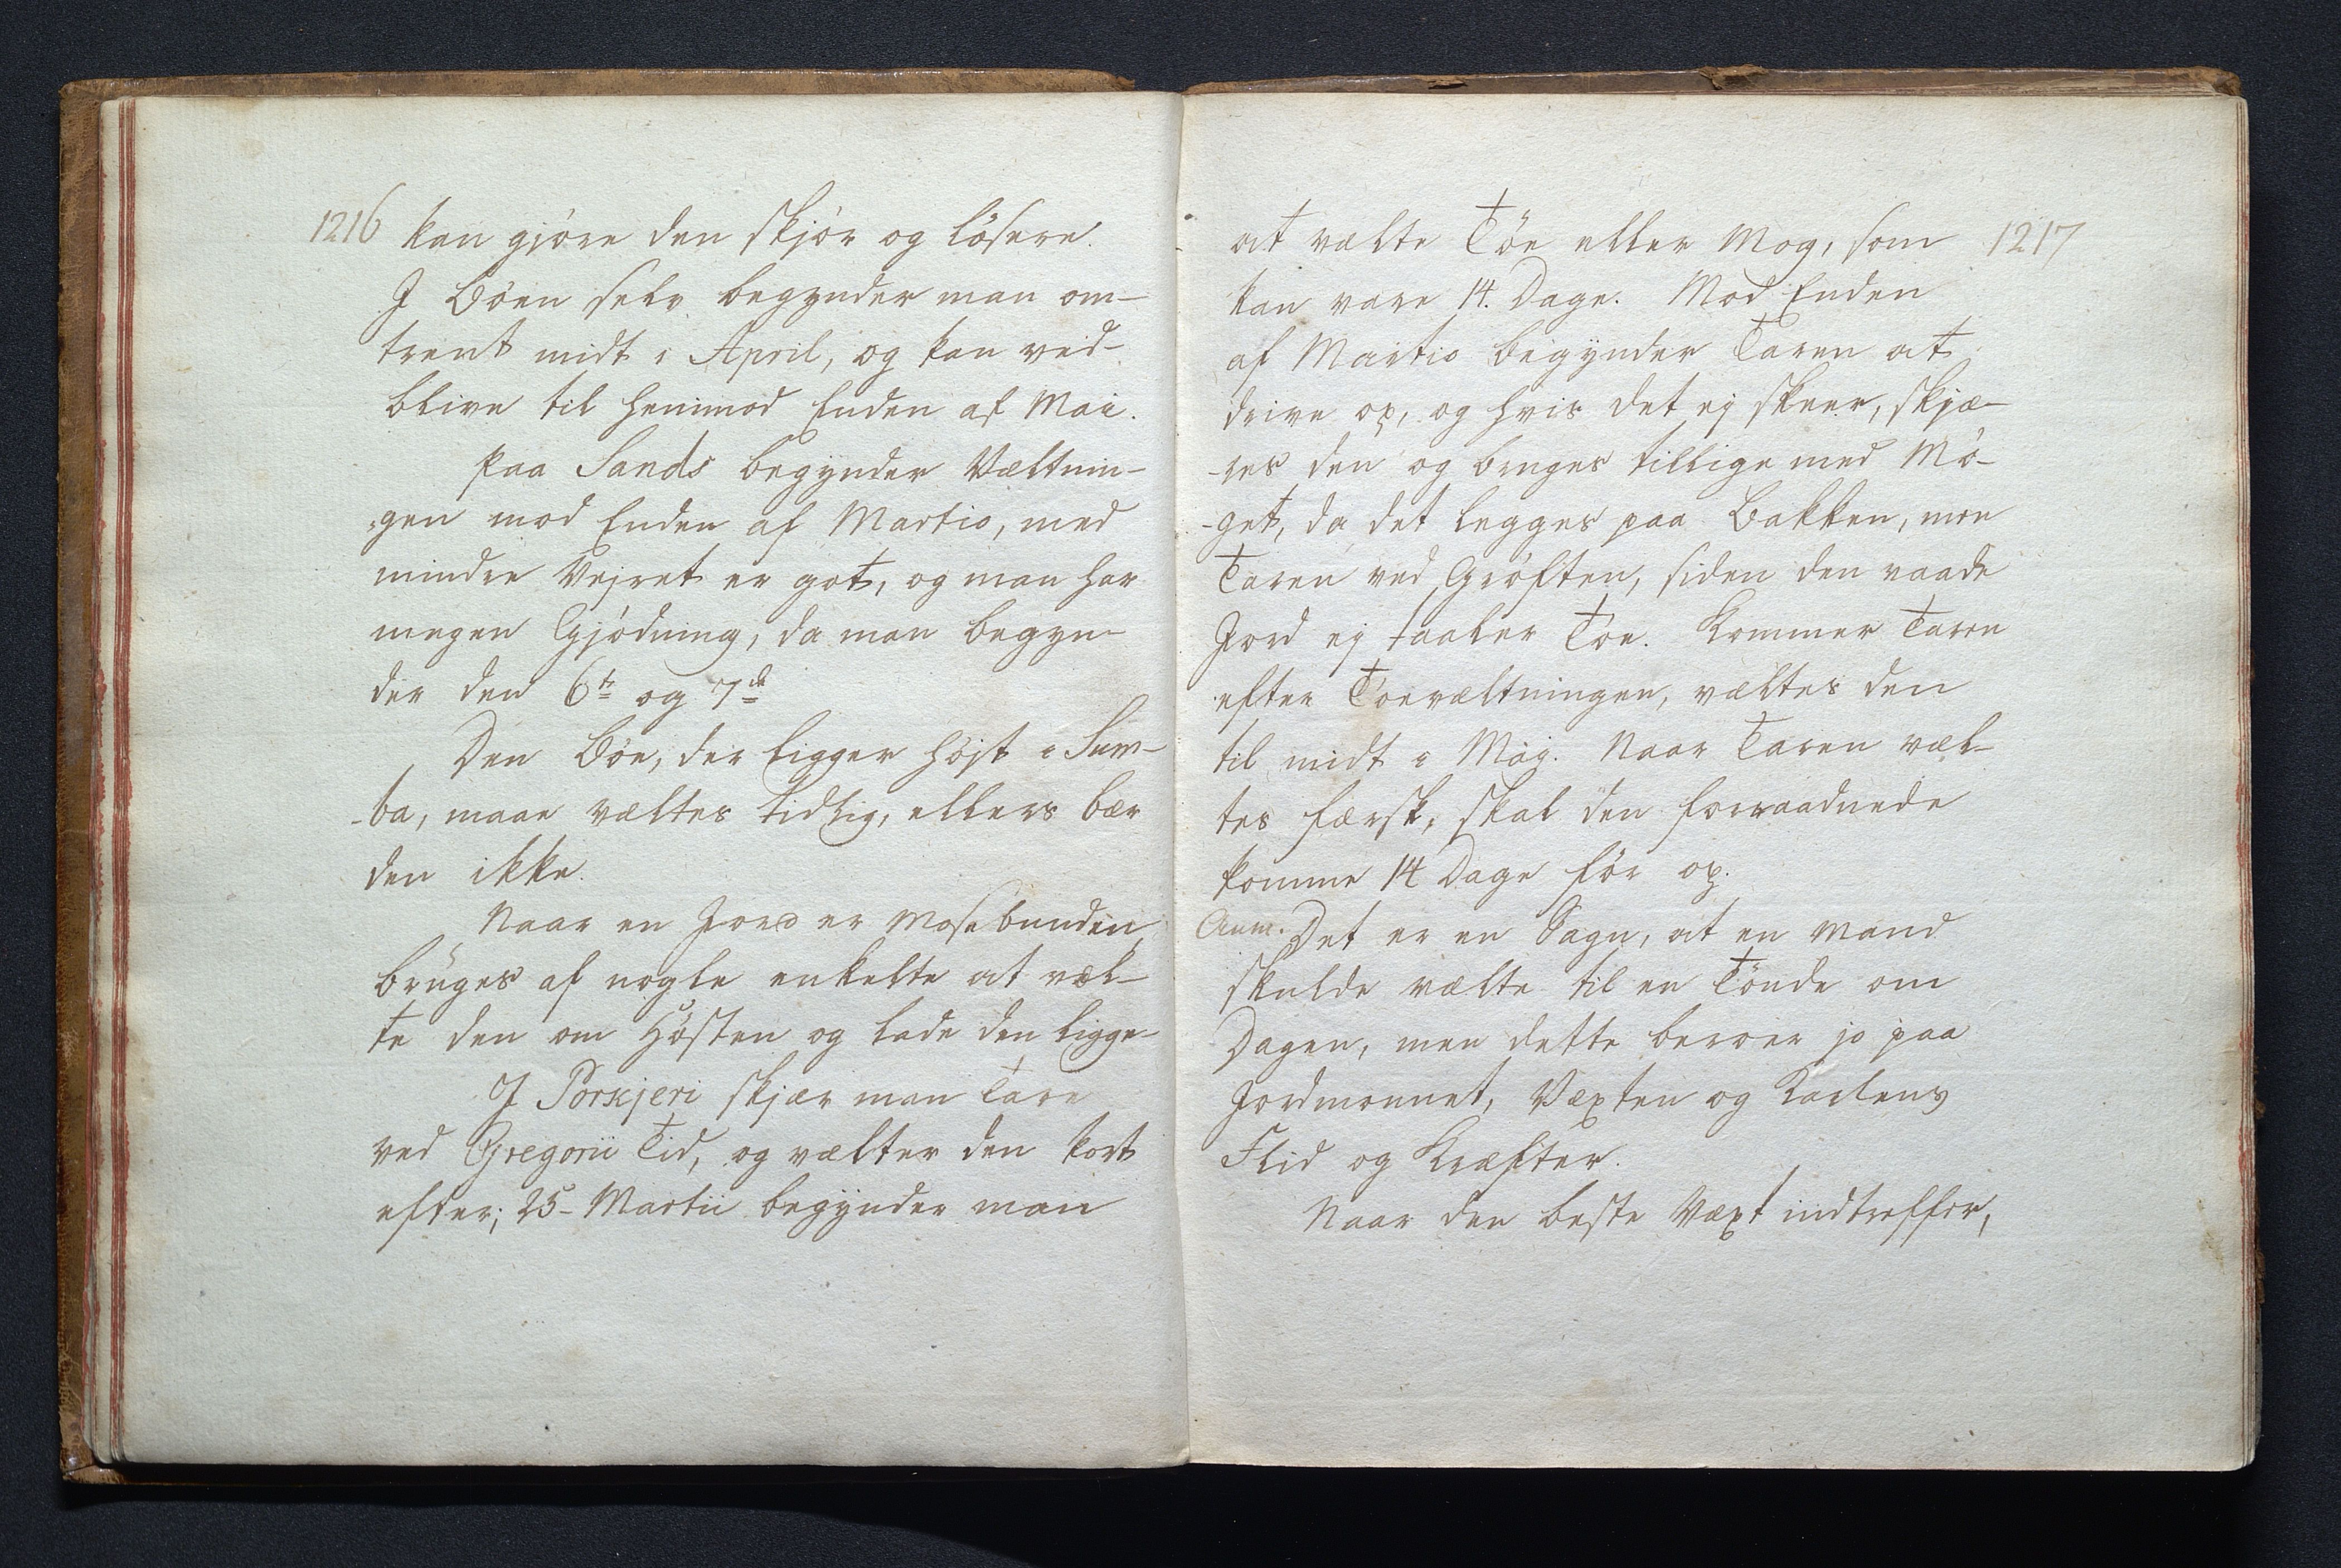 1216 kan gjöre den skjör og lösere.
I Böen selv begynder man om-
trent midt i April, og kan ved-
blive til henimod Enden af Mai.
Paa Sands begynder Væltnin-
gen mod Enden af Martio, med
mindre Vejret er got, og man har
megen Gjödning, da man begyn-
der den 6te og 7de
Den Böe, der ligger höjt i Sum-
ba, maae væltes tidlig, ellers bær
den ikke.
Naar en Jord er Mosebunden,
brúges af nogle enkelte at væl-
te den om Hösten og lade den ligge
I Porkjeri skjær man Tare
ved Gregorii Tid, og vælter den kort
efter; 25- Martii begynder man
at vælte Töe eller Mog, som 1217
kan vare 14. Dage. Mod Enden
af Martio begynder Taren at
drive op, og hvis det ej skeer, skjæ-
-res den og bruges tillige med Mö-
-get, da det legges paa Bakken, men
Taren ved Gröften, siden den vaade
Jord ej taaler Töe. Kommer Taren
efter Töevæltningen, væltes den
til midt i Maj. Naar Taren væl-
tes færsk, skal den forraadnede
komme 14 Dage för op.
Anm. Det er en Sagn, at en Mand
skulde vælte til en Tönde om
Dagen, men dette beroer jo paa
Jordmonnet, Væxten og Karlens
Flid og Kræfter.
Naar den beste Væxt indtreffer,